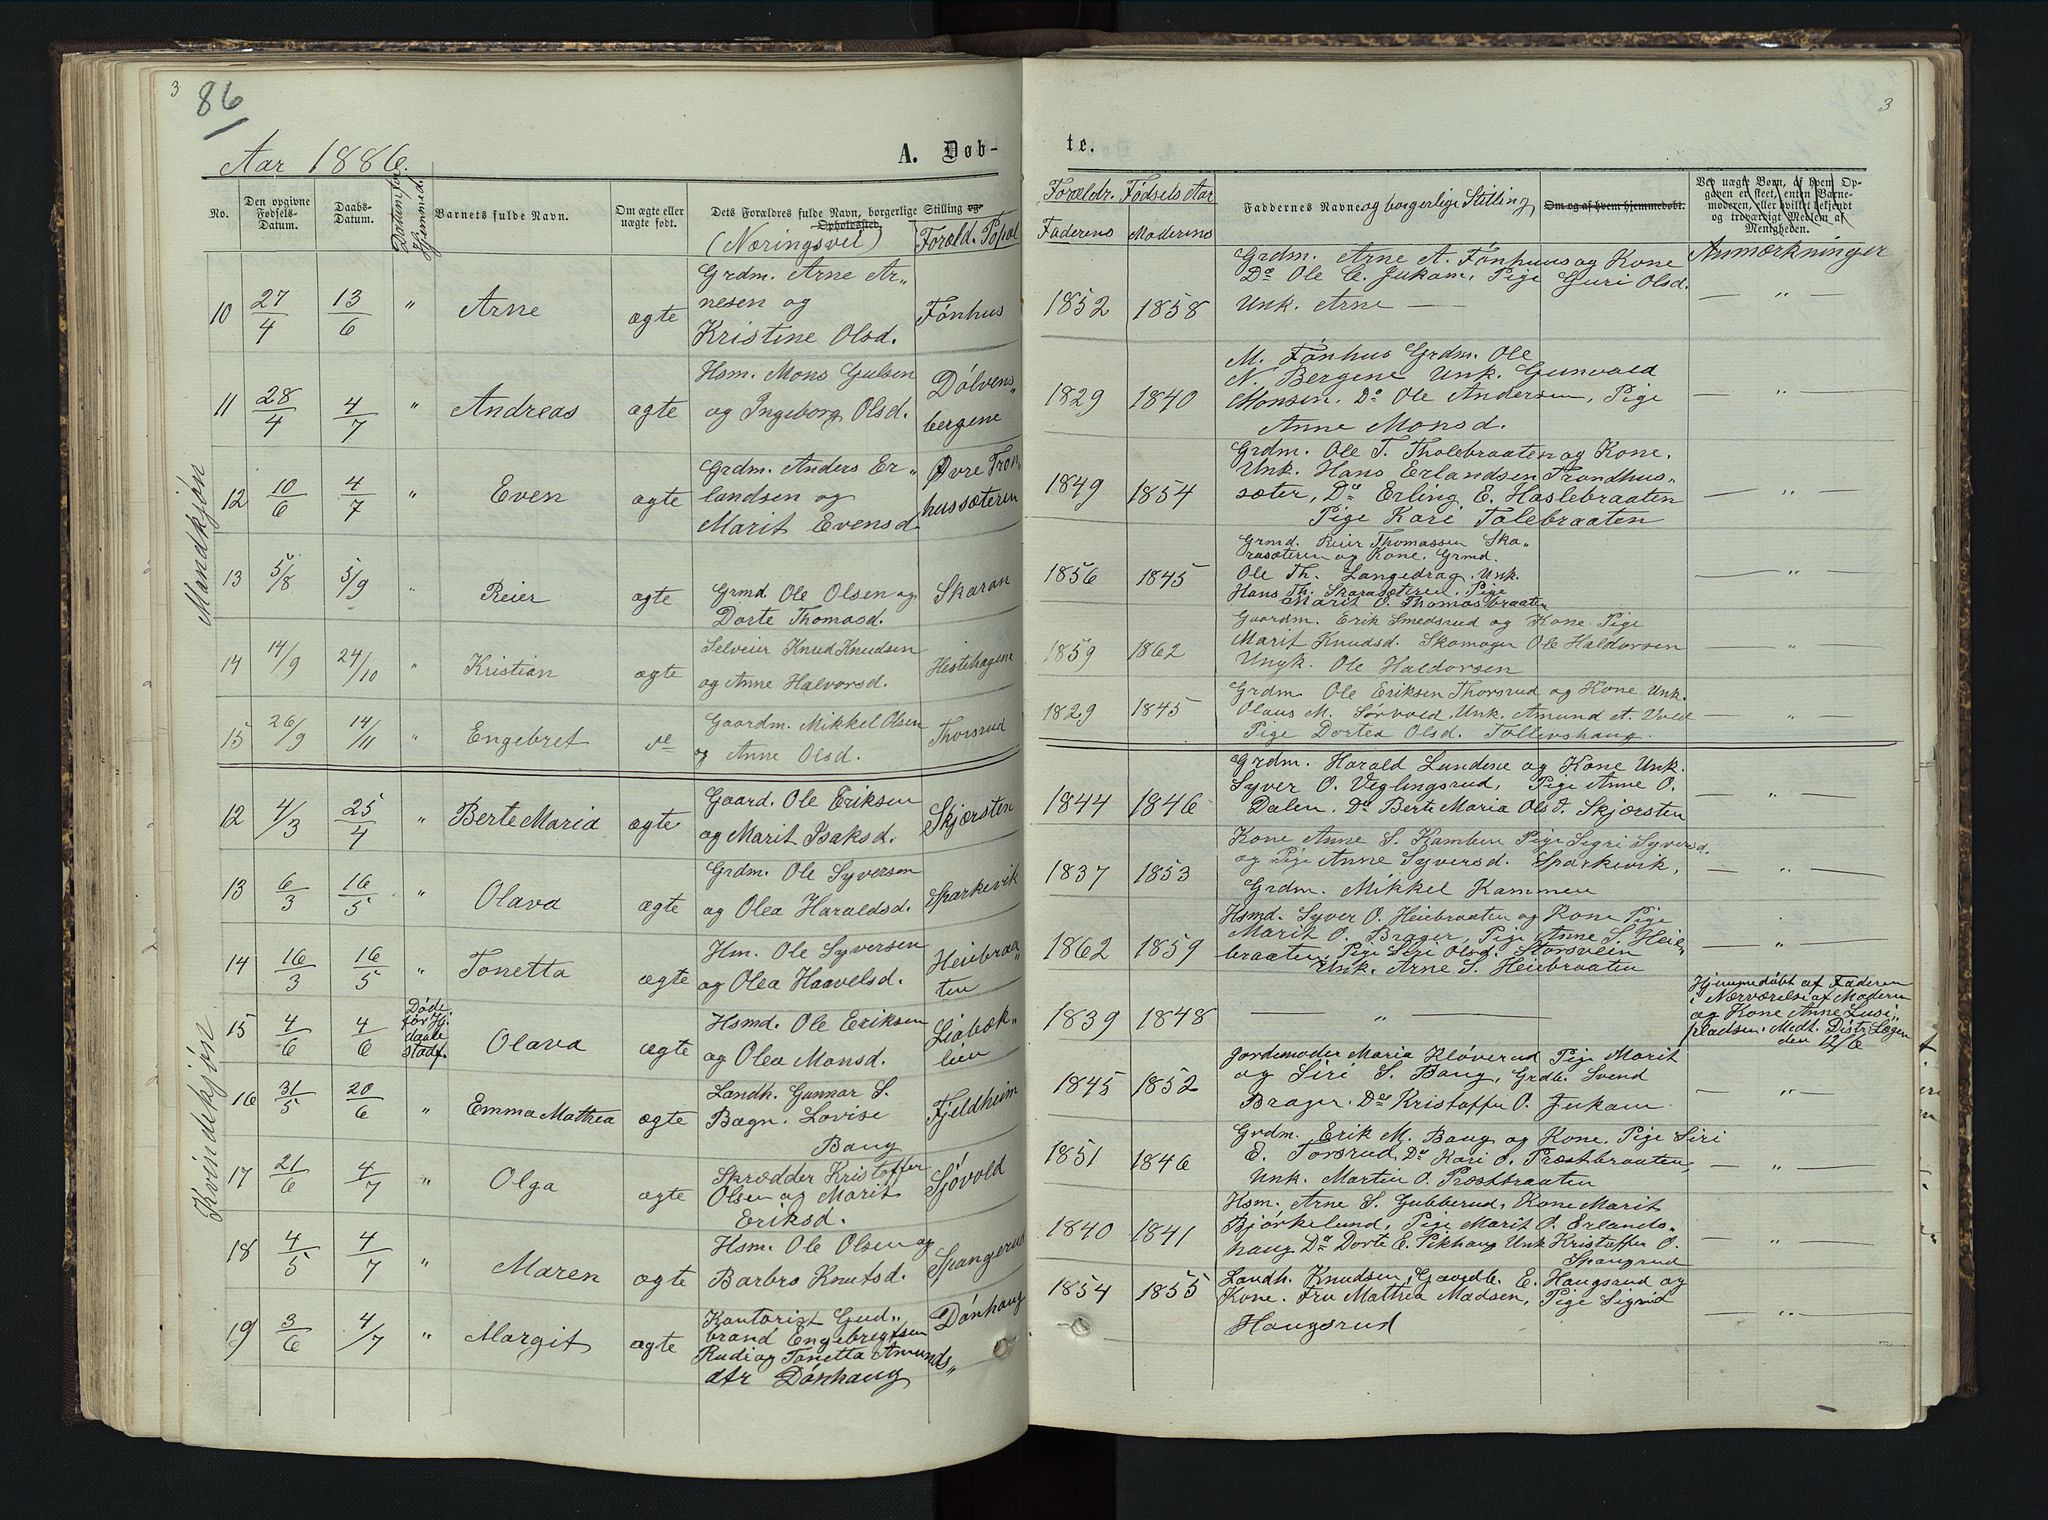 3
86
Aar 1886.
A. Døb-
No.
Den opgivne Fødsels-Datum.
Daabs-Datum.
Datum for Hjemmed.
Barnets fulde Navn.
Om ægte eller uægte født.
Dets Forældres fulde Navn, borgerlige Stilling og Opholdssted.
(Næringsvei)
Foræld. Bopæl
Mandkjøn
10 27/4 13/6 " Arne ægte
Grdm. Arne Ar-
nesen og
Kristine Olsd.
Fønhus
11 28/4 4/7 " Andreas ægte
Hsm. Mons Gulsen
og Ingeborg Olsd.
Dølvens-
bergene
12 10/6 4/7 " Even ægte
Grdm. Anders Er-
landsen og
Marit Evensd.
Øvre Tron
hussæteren
13 5/8 5/9 " Reier ægte
Grmd. Ole Olsen og
Dorte Thomasd.
Skaran
14 14/9 24/10 " Kristian ægte
Selveier Knud Knudsen
og Anne Halvorsd.
Hestehagene
15 26/9 14/11 " Engebret
Gaardm. Mikkel Olsen
og Anne Olsd.
Thorsrud
Kvindekjøn
12 4/3 25/4 " Berte Maria ægte
Gaard. Ole Eriksen
og Marit Isaksd.
Skjørsten
13 6/3 16/5 " Olava ægte
Grdm. Ole Syversen
og Olea Haraldsd.
Sparkevik
14 16/3 16/5 " Tonetta ægte
Hm. Ole Syversen
og Olea Haavelsd.
Heiebraa-
ten
15 4/6 4/6
Døde
før Hj.
daabs
stadf.
Olava ægte
Hsmd. Ole Eriksen
og Olea Monsd.
Liabæk-
lien
16 31/5 20/6 " Emma Mathea ægte
Landh. Gunnar S.
Bagn. Lovise
Bang
Fjeldheim
17 21/6 4/7 " Olga ægte
Skrædder Kristoffer
Olsen og Marit
Eriksd.
Sjøvold
18 4/5 4/7 " Maren ægte
Hsm. Ole Olsen og
Barbro Knutsd.
Spangerud
19 3/6 4/7 " Margit ægte
Kontorist Gud-
brand Engebregtsen
Rudi og Tonetta Amunds-
dtr Dønhaug
Dønhaug
3
te.
Forældr. Fødsels Aar
Faderens Moderens
Faddernes Navne og borgerlige Stilling
Om og af hvem hjemmedøbt.
Ved uægte Børn, af hvem Op-
gaven er sket, enten Barne-
moderen, eller hvilket bekjendt
og troværdigt Medlem af
Menigheden.
Anmærkninger
1852 1858
Grdm. Arne A. Fønhuus og Kone
Do Ole C. Jukam, Pige Guri Olsd.
Unk. Arne — — " —
1829 1840
M. Fønhus Grdm. Ole
N. Bergene Unk. Gunvald
Monsen. Do Ole Andersen, Pige
Anne Monsd.
— " —
1849 1854
Grdm. Ole T. Tholebraaten og Kone.
Unk. Hans Erlandsen Trondhus-
sæter, Do Erling E. Haslebraaten
Pige Kari Tolebraaten
— " —
1856 1845
Grmd. Reier Thomassen Ska-
rasæteren og Kone. Grmd.
Ole Th. Langedrag. Unk.
Hans Th. Skarasæteren. Pige
Marit O. Thomasbraaten
— " —
1859 1862
Gaardm. Erik Smedsrud og Kone. Pige
Marit Knudsd. Skomager Ole Haldorsen
Ungk. Ole Haldorsen
— " —
1829 1845
Grdm. Ole Eriksen Thorsrud og Kone Unk.
Olaus M. Sørvold, Unk. Amund A. Vold
Pige Dortea Olsd. Tollevshaug.
— " —
1844 1846
Grdm. Harald Lundene og Kone Unk.
Syver O. Veglingsrud, Pige Anne O.
Dalen. Do Berte Maria Olsd. Skjørsten
— " —
1837 1853
Kone Anne S. Kamben Pige Sigri Syversd.
og Pige Anne Syversd. Sparkevik,
Grdm. Mikkel Kammen
— " —
1862 1859
Hsmd. Syver O. Heiebraaten og Kone Pige
Marit O. Brager, Pige Anne S. Heie-
braaten, Pige Siri Olsd. Storsveen
Unk. Arne S. Heiebraaten
— " —
1839 1848 — " —
Hjemmedøbt af Faderen
i Nærværelse af Moderen
og Kone Anne
Medh. Distr. Lægen
den 12/6
1845 1852
Jordemoder Maria Kløverud Pige Marit
og Siri S. Bang, Grdb. Svend
Brager. Do Kristoffer O. Jukam.
— " —
1851 1846
Grdm. Erik M. Bang og Kone. Pige Siri
E. Torsrud, Do Kari O. Præstbraaten,
Unk. Martin O. Præstbraaten
— " —
1840 1841
Hsm. Arne S. Gubberud, Kone Marit
Bjørkelund, Pige Marit O. Erlands-
haug Do Dorte E. Pikhaug Unk Kristoffer O.
Spangrud
— " —
1854 1855
Landh. Knudsen, Gaardb. E. Haugsrud og
Kone. Fru Mathea Madsen, Pige Sigrid
Haugsrud
— " —